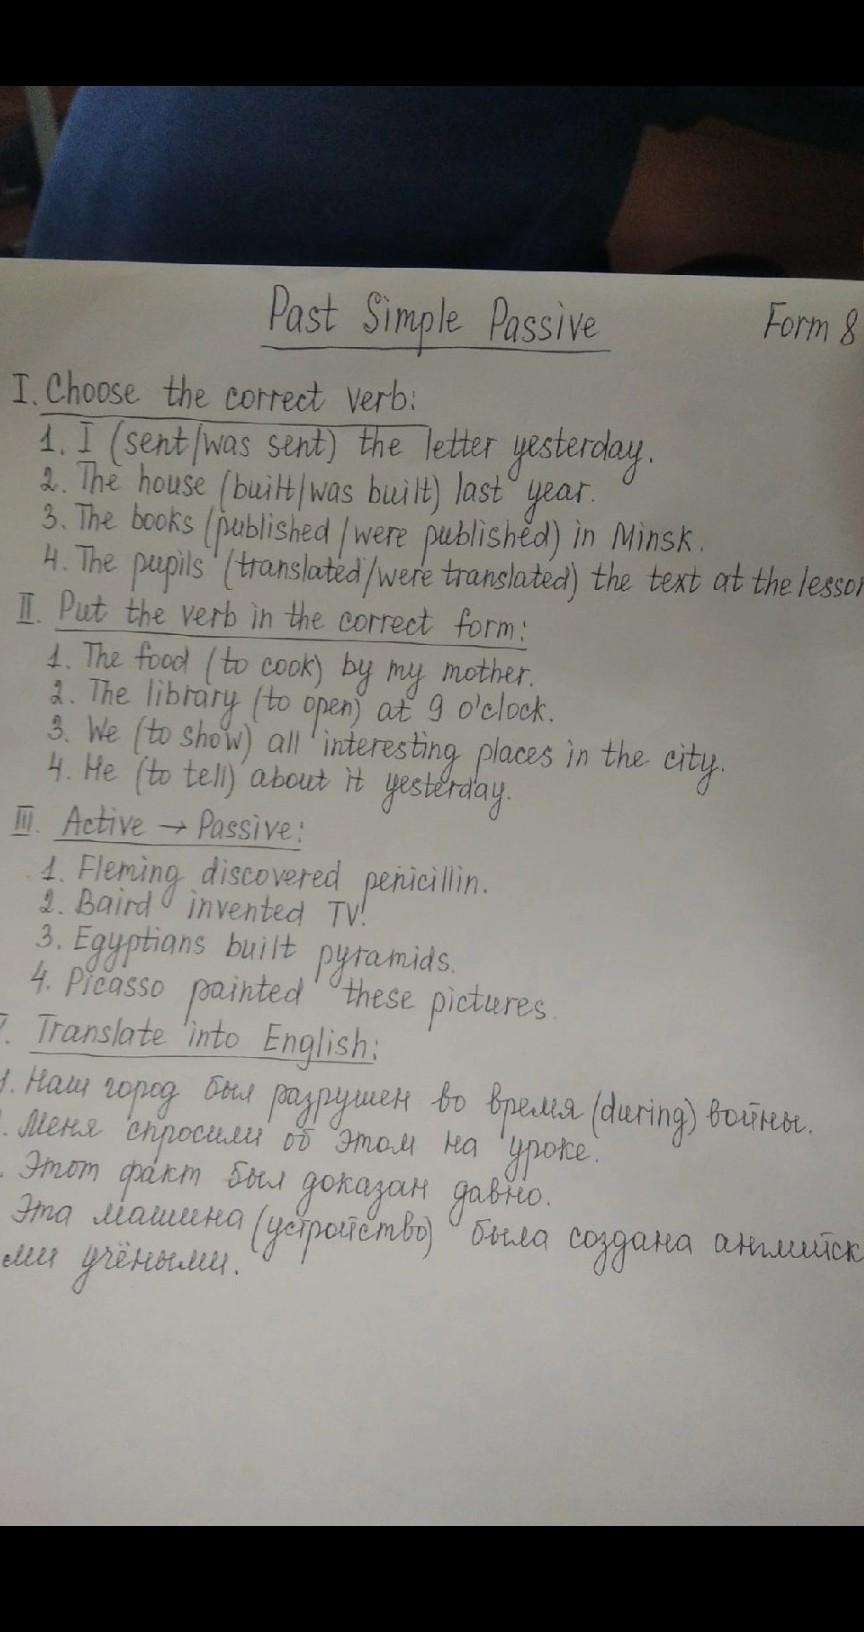 Past Simple Passive
Form 8
I. Choose the correct verb:
1. I (sent/was sent) the letter yesterday.
2. The house (built/was built) last year.
3. The books (published/were published) in Minsk.
4. The pupils (translated/were translated) the text at the lesson
II. Put the verb in the correct form:
1. The food (to cook) by my mother.
2. The library (to open) at 9 o'clock.
3. We (to show) all interesting places in the city.
4. He (to tell) about it yesterday.
III. Active → Passive:
1. Fleming discovered penicillin.
2. Baird invented TV.
3. Egyptians built pyramids.
4. Picasso painted these pictures.
. Translate into English:
1. Наш город был разрушен во время (during) войны.
. Меня спросили об этом на уроке.
. Этот факт был доказан давно.
Эта машина (устройство) была создана английск
ми учёными.